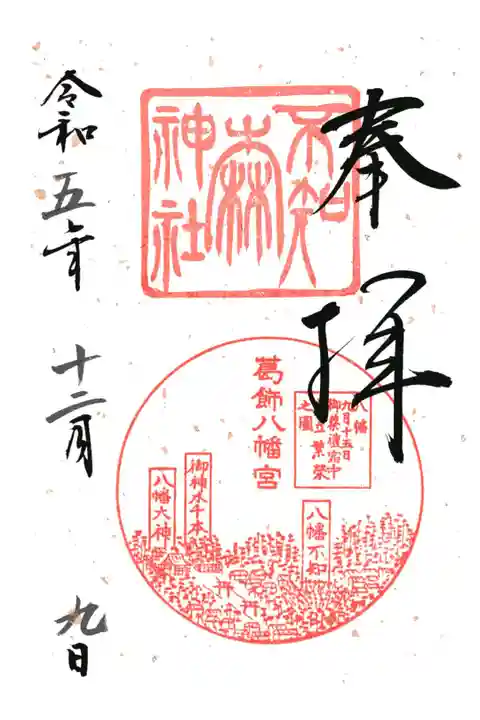 奉拝
不知
森
神社
葛飾八幡宮
八幡
九月十五日
御祭禮宿中
立繁榮
之圖
八幡不知
御神木千本
八幡大神
令和五年
十二月
九日